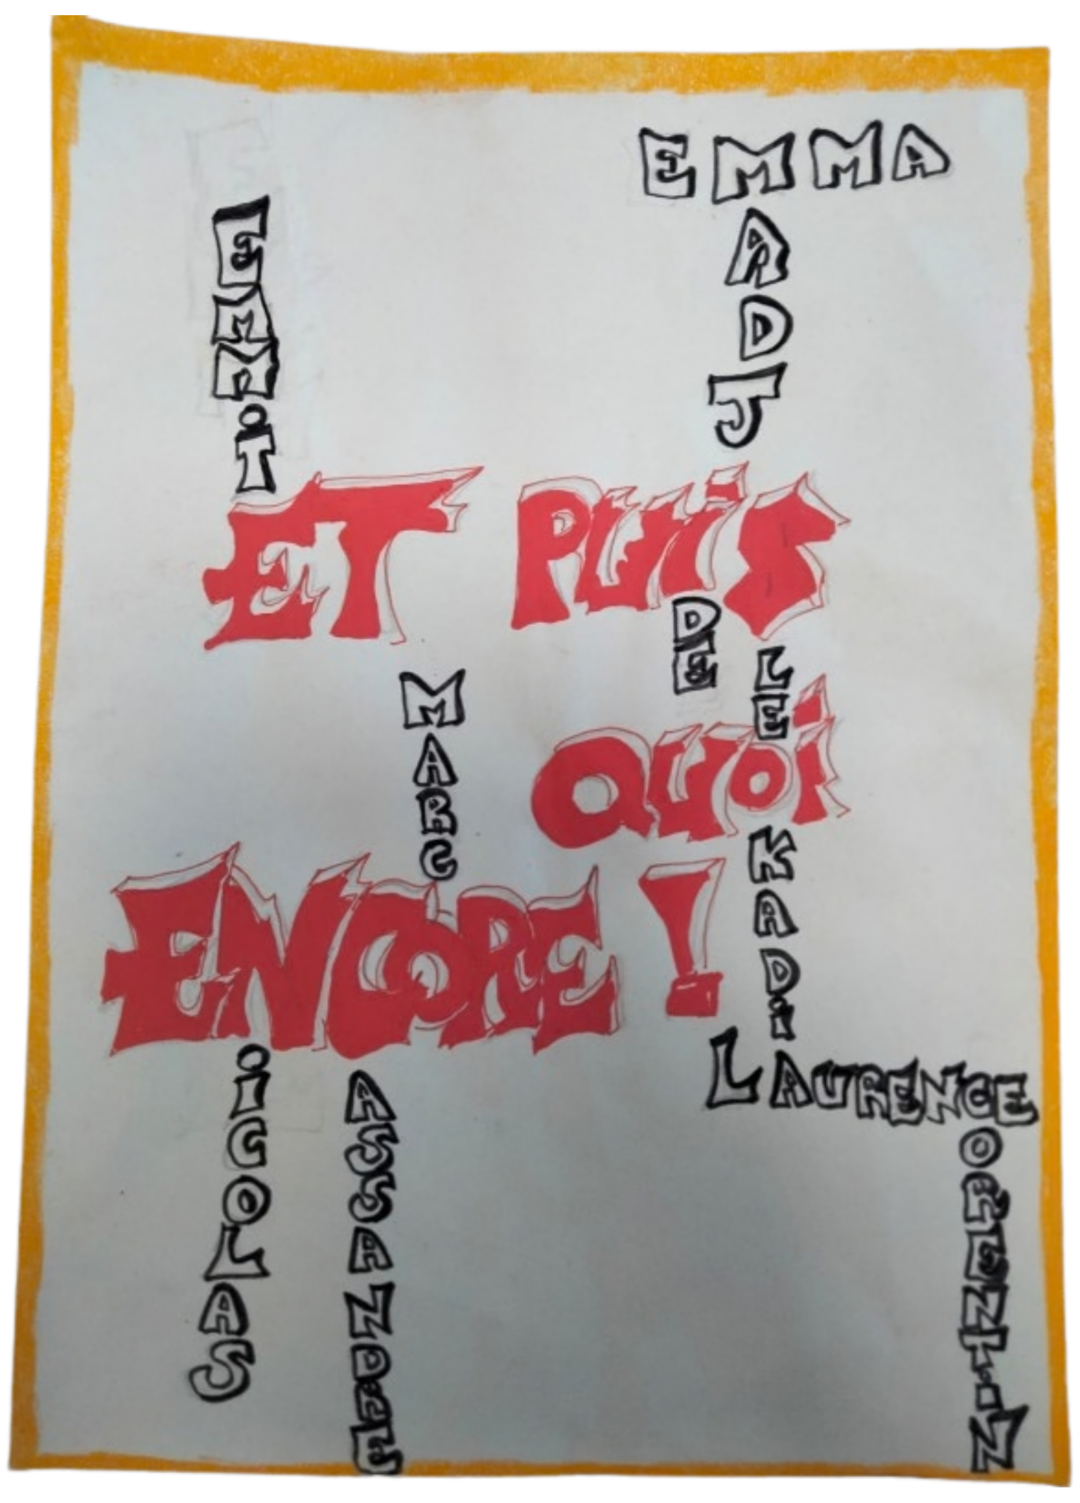 EMMA
ADJ
EMMiT
ET PUiS
DE
LE
MARC
QUOi
KADi
ENCORE !
LAURENCE
iCOLAS
ASSANDRE
ORENTiN